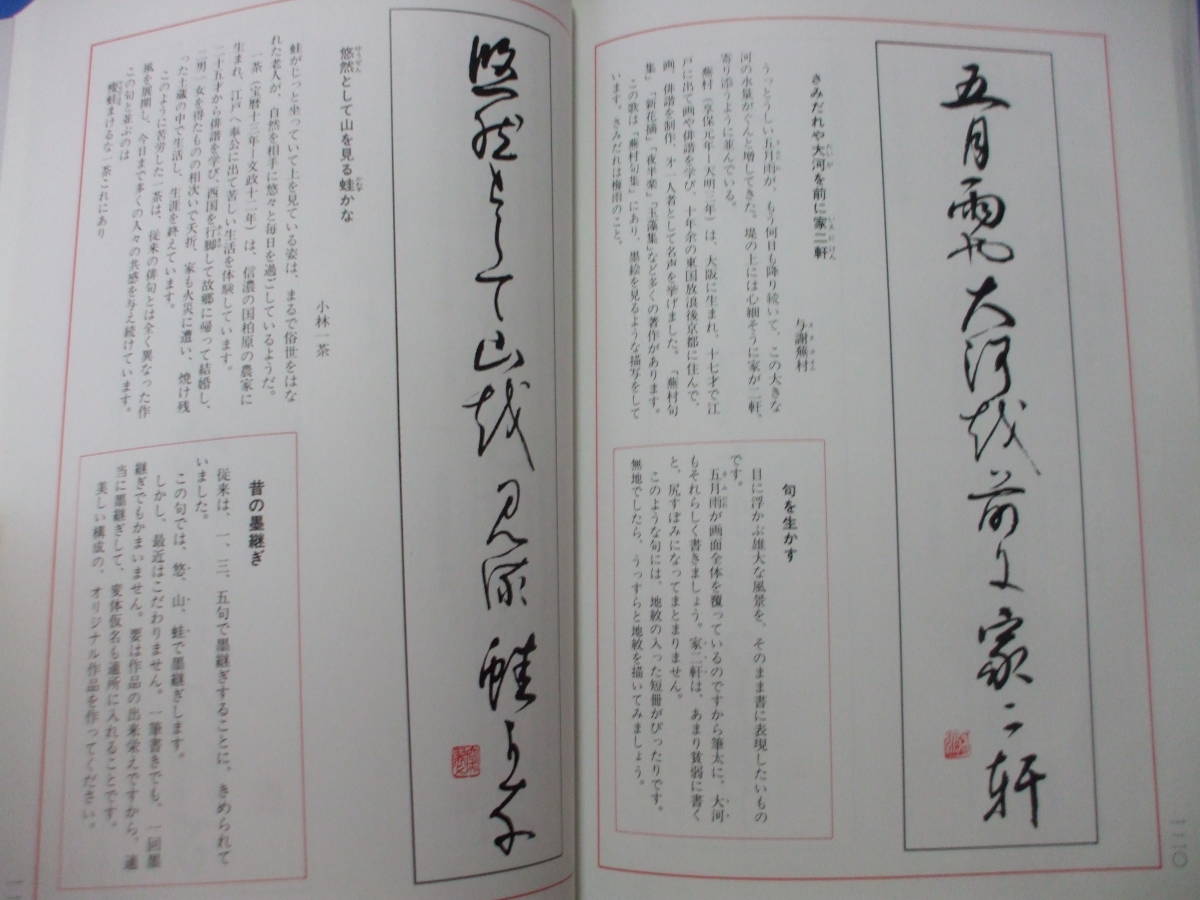 五月雨也大河越前に家二軒
さみだれや大河を前に家二軒
たいが
いえにけん
与謝蕪村
よさぶそん
うっとうしい五月雨が、もう何日も降り続いて、この大きな
さみだれ
河の水量がぐんと増してきた。堤の上には心細そうに家が二軒、
寄り添うように並んでいる。
蕪村（享保元年ー天明三年）は、大阪に生まれ、十七才で江
戸に出て画や俳諧を学び、十年余の東国放浪後京都に住んで、
画、俳諧を制作、才一人者として名声を挙げました。「蕪村句
集」「新花摘」「夜半楽」「玉藻集」など多くの著作があります。
この歌は「蕪村句集」にあり、墨絵を見るような描写をして
います。さみだれは梅雨のこと。
句を生かす
目に浮かぶ雄大な風景を、そのまま書に表現したいもの
です。
五月雨が画面全体を覆っているのですから筆太に、大河
さみだれ
もそれらしく書きましょう。家二軒は、あまり貧弱に書く
と、尻すぼみになってまとまりません。
このような句には、地紋の入った短冊がぴったりです。
無地でしたら、うっすらと地紋を描いてみましょう。
一二〇
悠然として山越見流蛙可奈
悠然として山を見る蛙かな
ゆうぜん
かわず
小林一茶
蛙がじっと坐っていて上を見ている姿は、まるで俗世をはな
れた老人が、自然を相手に悠々と毎日を過ごしているようだ。
一茶（宝暦十三年ー文政十一年）は、信濃の国柏原の農家に
生まれ、江戸へ奉公に出て苦しい生活を体験しています。
二十五才から俳諧を学び、西国を行脚して故郷に帰って結婚し、
あんぎゃ
二男一女を得たものの相次いで夭折、家も火災に遭い、焼け残
った土蔵の中で生活し、生涯を終えています。
このように苦労した一茶は、従来の俳句とは全く異なった作
風を展開し、今日まで多くの人々の共感を与え続けています。
この句と並ぶのは
痩蛙まけるな一茶これにあり
昔の墨継ぎ
従来は、一、三、五句で墨継ぎすることに、きめられて
いました。
この句では、悠、山、蛙で墨継ぎします。
しかし、最近はこだわりません。一筆書きでも、一回墨
継ぎでもかまいません。要は作品の出来栄えですから、適
当に墨継ぎして、変体仮名も適所に入れることです。
美しい構成の、オリジナル作品を作ってください。